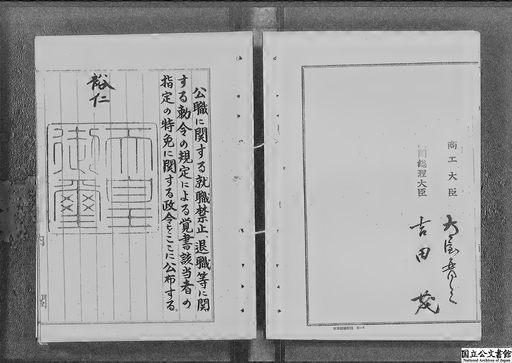 公職に関する就職禁止、退職等に関
する勅令の規定による覚書該当者の
指定の特免に関する政令をここに公布する
裕仁
天皇
御璽
商工大臣
内閣総理大臣
吉田茂
国立公文書館
National Archives of Japan